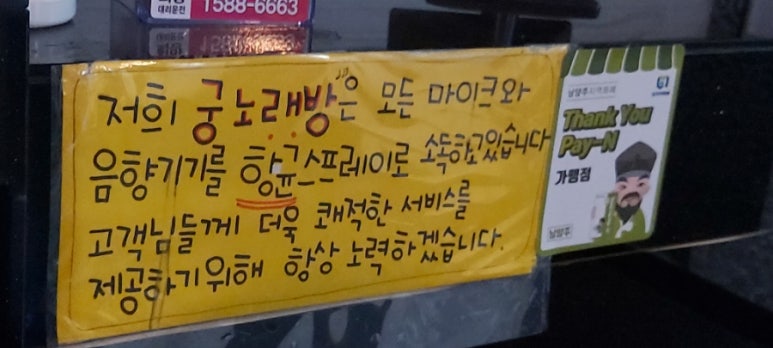 대리운전 1588-6663
저희 궁노래방은 모든 마이크와
음향기기를 항균스프레이로 소독하고있습니다
고객님들께 더욱 쾌적한 서비스를
제공하기위해 항상 노력하겠습니다.
남양주지역화폐
Thank You
Pay-N
가맹점
남양주